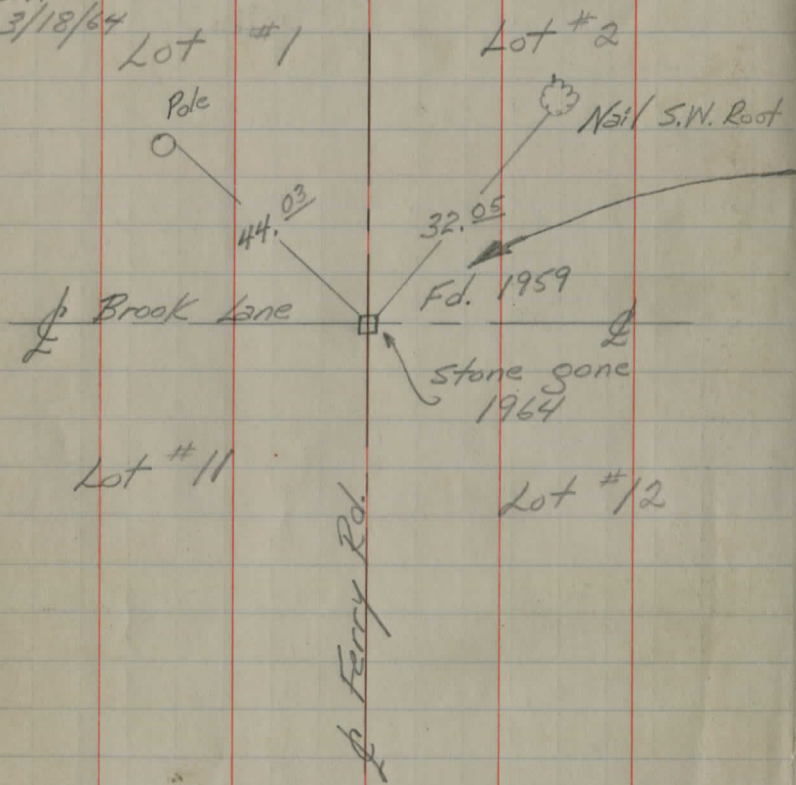 3/18/64
Lot #1
Lot #2
Pole
Nail S.W. Root
44.03
32.05
Fd. 1959
℄ Brook Lane
℄
stone gone
1964
Lot #11
Lot #12
℄ Ferry Rd.